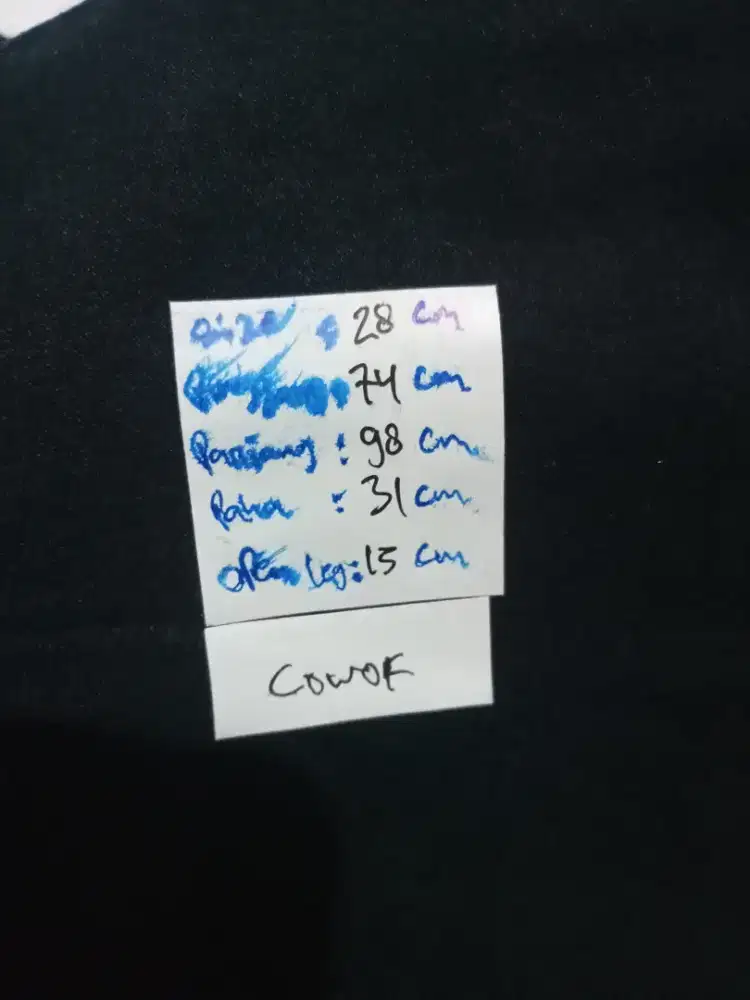 Size : 28 cm
: 74 cm
Panjang : 98 cm
Paha : 31 cm
open leg : 15 cm
COWOK